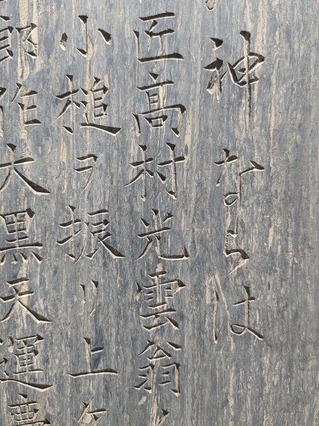 神ならは
匠高村光雲翁
小槌ヲ振リ上ケ
郎作大黒天運慶